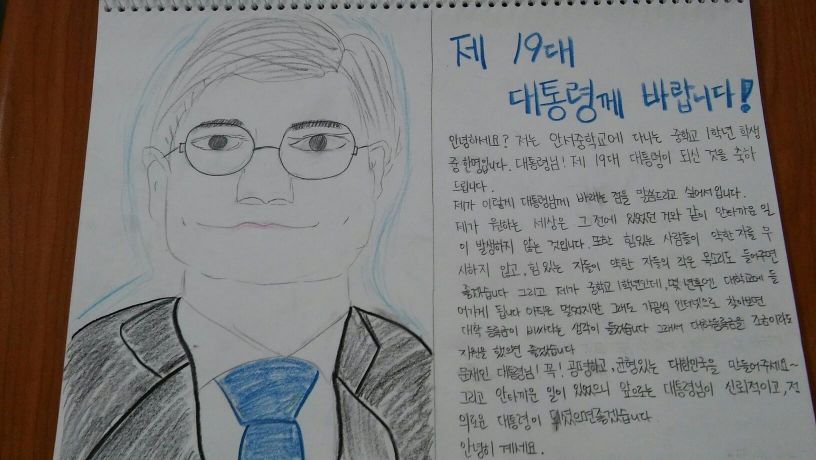 제 19대
대통령께 바랍니다!
안녕하세요? 저는 안서중학교에 다니는 중학교 1학년 학생
중 한명입니다. 대통령님! 제 19대 대통령이 되신 것을 축하
드립니다.
제가 이렇게 대통령님께 바래는 점을 말씀드리고 싶어서 입니다.
제가 원하는 세상은 그 전에 있었던 거와 같이 안타까운 일
이 발생하지 않는 것입니다. 또한 힘있는 사람들이 약한 자를 무
시하지 않고, 힘 있는 자들이 약한 자들의 작은 목소리도 들어주면
좋겠습니다 그리고 제가 중학교 1학년인데, 몇 년후엔 대학교에 들
어가게 됩니다 아직은 멀었지만 그래도 가끔씩 인터넷으로 찾아보면
대학 등록금이 비싸다는 생각이 들었습니다 그래서 대학등록금을 조금이라도
지원을 했으면 좋겠습니다
문재인 대통령님! 꼭! 공평하고, 균형있는 대한민국을 만들어주세요~
그리고 안타까운 일이 있었으니 앞으로는 대통령님이 신뢰적이고, 정
의로운 대통령이 되셨으면좋겠습니다
안녕히 계세요.